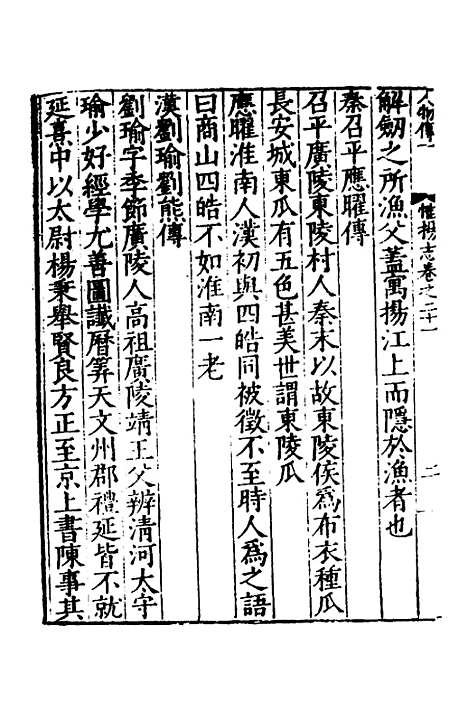 人物傳一 惟揚志卷之二十一 二
解劒之所漁父蓋寓揚江上而隱於漁者也
秦召平應曜傳
召平廣陵東陵村人秦末以故東陵侯爲布衣種瓜
長安城東瓜有五色甚美世謂東陵瓜
應曜淮南人漢初與四皓同被徵不至時人爲之語
曰商山四皓不如淮南一老
漢劉瑜劉熊傳
劉瑜字季節廣陵人高祖廣陵靖王父辨清河太守
瑜少好經學尤善圖讖曆筭天文州郡禮延皆不就
延熹中以太尉楊秉舉賢良方正至京上書陳事其